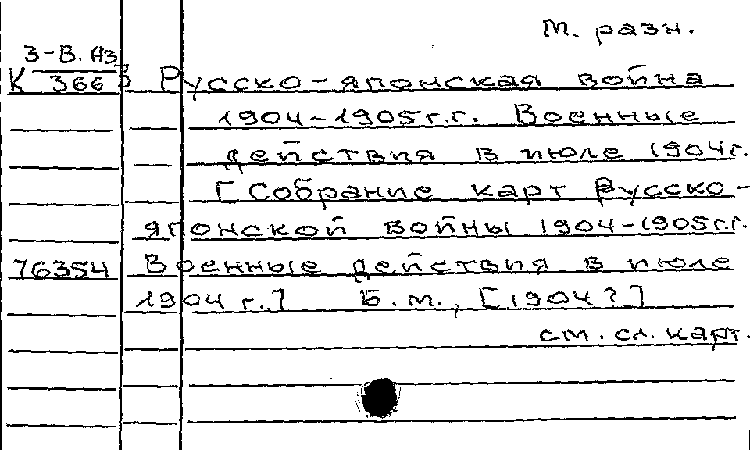 М. разн.
3-В. Аз
К 3663 Русско-японская война
1904-1905г.г. Военные
действия в июле 1904г.
[Собрание карт Русско-
японской войны 1904-1905г.г.
76354 Военные действия в июле
1904 г.] Б.м., [1904?]
см. сл. карт.